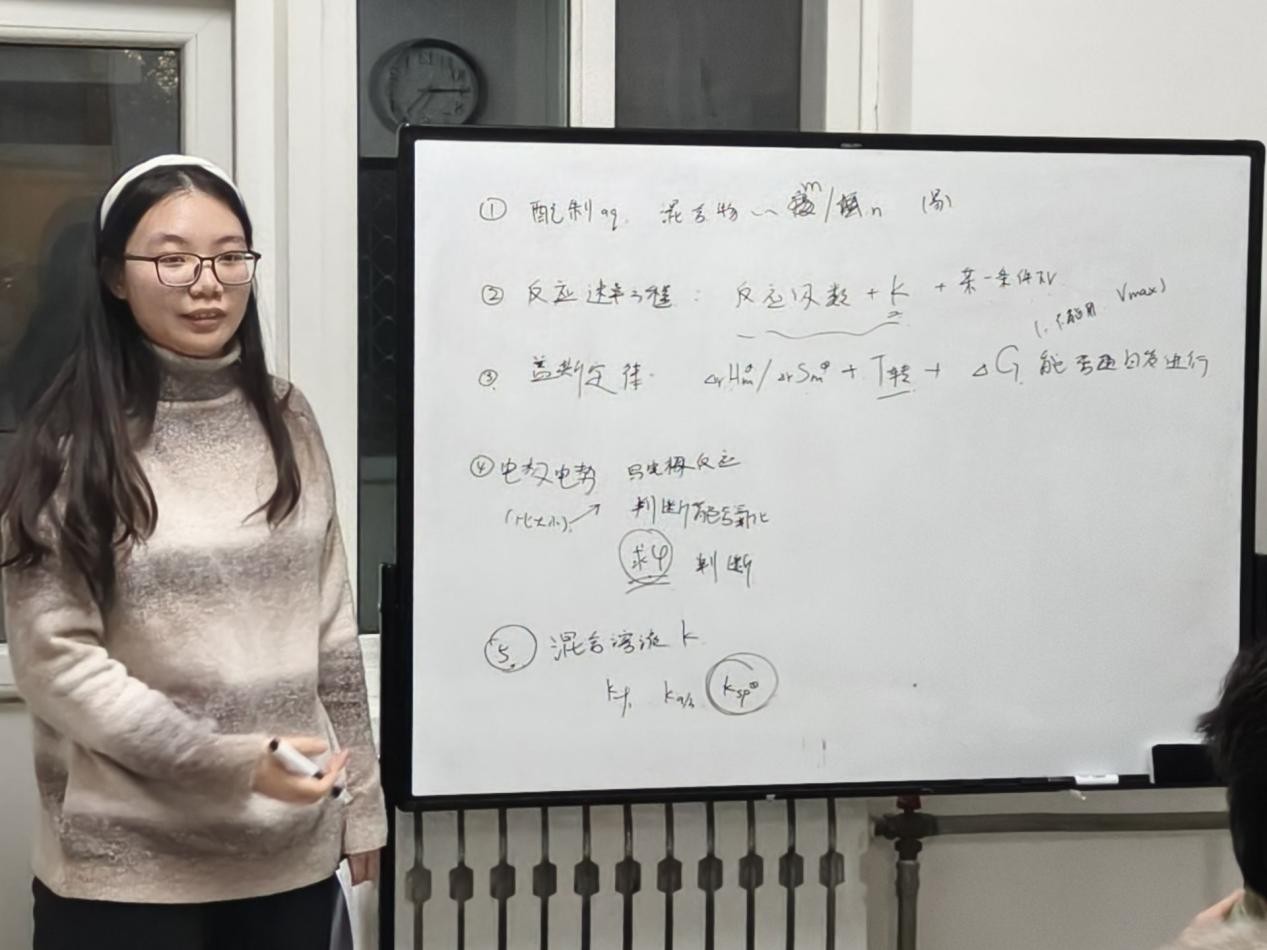 ① 配制aq. 混合物 m/ n (易)
② 反应速率方程: 反应级数 + k + 某一条件下V
Vmax)
③ 盖斯定律. ΔrHmᶱ/ΔrSmᶱ + T转 + ΔG 能否自发进行
④ 电极电势 写电极反应
(比大小) ↗ 判断能否氧化
求φ 判断
5. 混合溶液 k
kf, ka/b ksp⊖